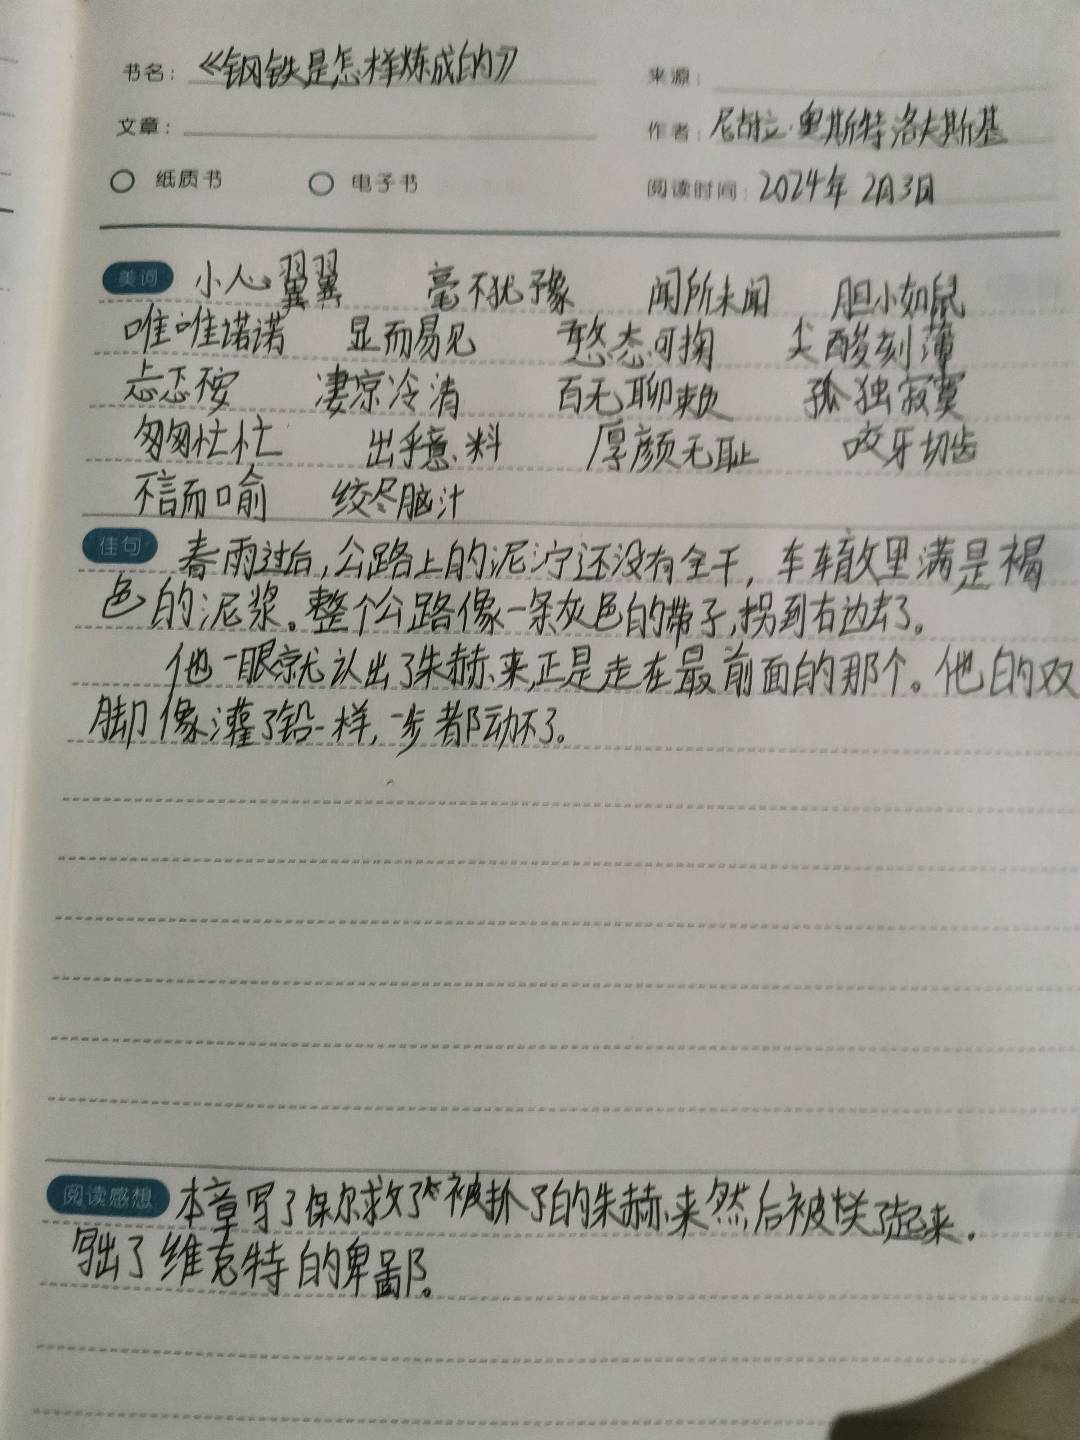 书名：《钢铁是怎样炼成的》
来源：
文章：
作者：尼古拉·奥斯特洛夫斯基
纸质书 电子书 阅读时间：2024年2月3日
美词 小心翼翼 毫不犹豫 闻所未闻 胆小如鼠
唯唯诺诺 显而易见 憨态可掬 尖酸刻薄
忐忑不安 凄凉冷清 百无聊赖 孤独寂寞
匆匆忙忙 出乎意料 厚颜无耻 咬牙切齿
不言而喻 绞尽脑汁
佳句 春雨过后，公路上的泥泞还没有全干，车辙里满是褐
色的泥浆。整个公路像一条灰色的带子，拐到右边去了。
他一眼就认出了朱赫来，正是走在最前面的那个。他的双
脚像灌了铅一样，一步都动不了。
阅读感想 本章写了保尔救了被抓了的朱赫来然后被关了起来.
写出了维克特的卑鄙。